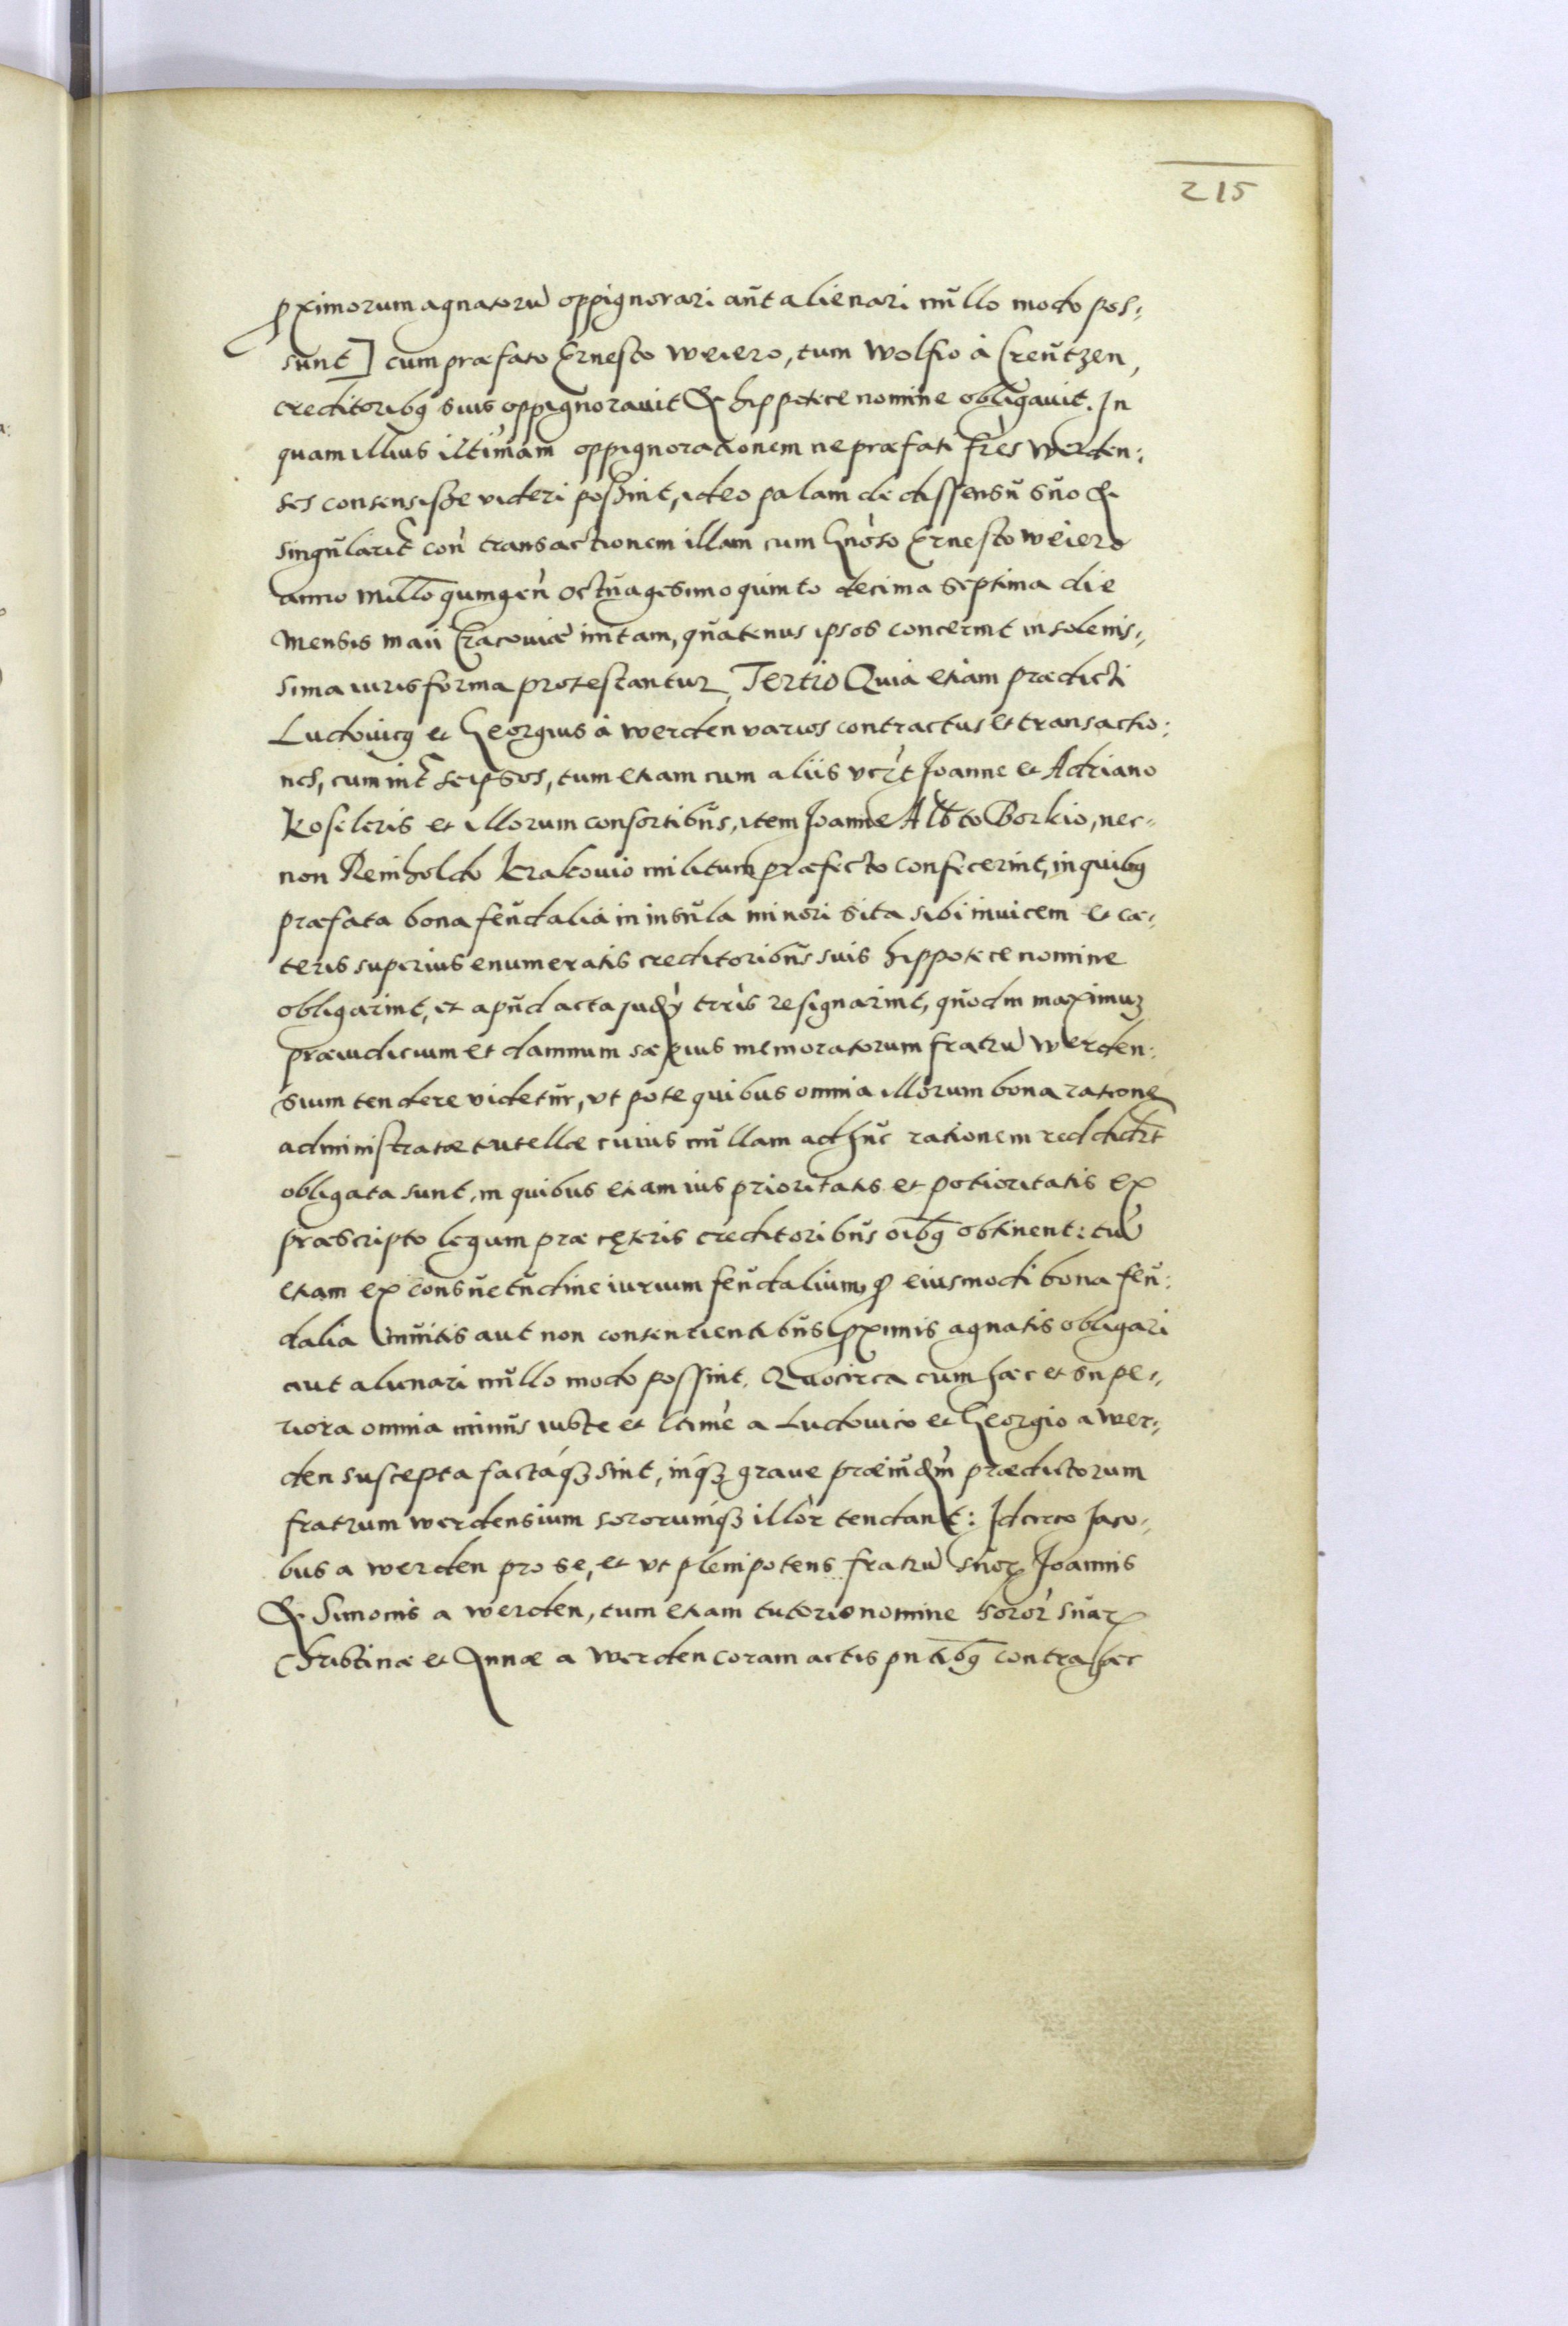 215
ꝓximorum agnatorũ oppignorari aut alienari nullo modo pos-
sunt] cum præfato Ernesto Weiero, tum Wolfio à Creutzen,
creditoribꝫ suis oppignorauit & hippotece nomine obligauit. In
quam illius iltimam oppignorationem ne præfati frẽs Werden-
ses consensisse videri possint, ideo palam de dissensu suo &
singularitr̃ con̄ transactionem illam cum Gñoso Ernesto Weiero
anno millõ quingeñ octuagesimo quinto decima septima die
mensis maii Cracoviæ initam, quatenus ipsos concernit in solenis-
sima iuris forma protestantur, Tertio Quia etiam prædicti
Ludouicꝫ et Georgius à Werden varios contractus et transactio-
nes, cum intr̃ seipsos, tum etiam cum aliis vcꝛ̃t Joanne et Adriano
Koseleris et illorum consortibus, item Joanne Albto Borkio, nec-
non Reinholdo Krakouio militum præfecto confecerint, in quibꝫ
præfata bona feudalia in insula minori sita sibi inuicem et cæ-
teris superius enumeratis creditoribus suis hippotece nomine
obligarint, et apud acta judÿ trr̃is resignarint, quod in maximuꝫ
præiudicium et damnum sæpius memoratorum fratrũ Werden-
sium tendere videtur, vt pote quibus omnia illorum bona ratione
administratæ tutellæ cuius nullam adhuc rationem reddidr̃t
obligata sunt, in quibus etiam ius prioritatis et potioritatis ex
præscripto legum præ cęteris creditoribus oı̃bꝫ obtinent: tũ
etiam ex consuetudine iurium feudalium, ꝙ eiusmodi bona feu-
dalia inuitis aut non consentientibus ꝓximis agnatis obligari
aut alienari nullo modo possint. Quocirca cum hæc et supe-
riora omnia minus iuste et ltime a Ludouico et Georgio a Wer-
den suscepta factaqꝫ sint, inqꝫ graue præiudm̃ prædictorum
fratrum Werdensium sororumqꝫ illor̃ tendant: Idcirco Jaco-
bus a Werden pro se, et vt plenipotens fratrũ suoꝝ Joannis
& Simonis a Werden, tum etiam tutorio nomine soror̃ suaꝝ
Christinæ et Annæ a Werden coram actis pñtibꝫ contra hæc